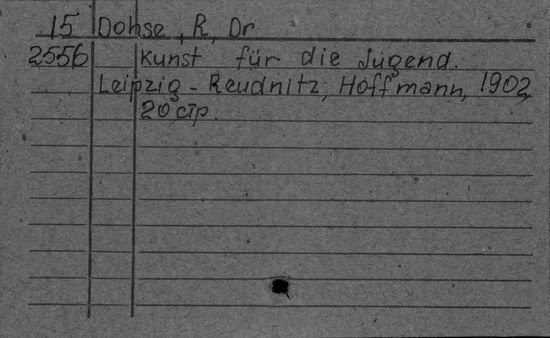 15 Dohse, R, Dr
2556 Kunst für die Jugend.
Leipzig - Reudnitz, Hoffmann, 1902,
20 стр.